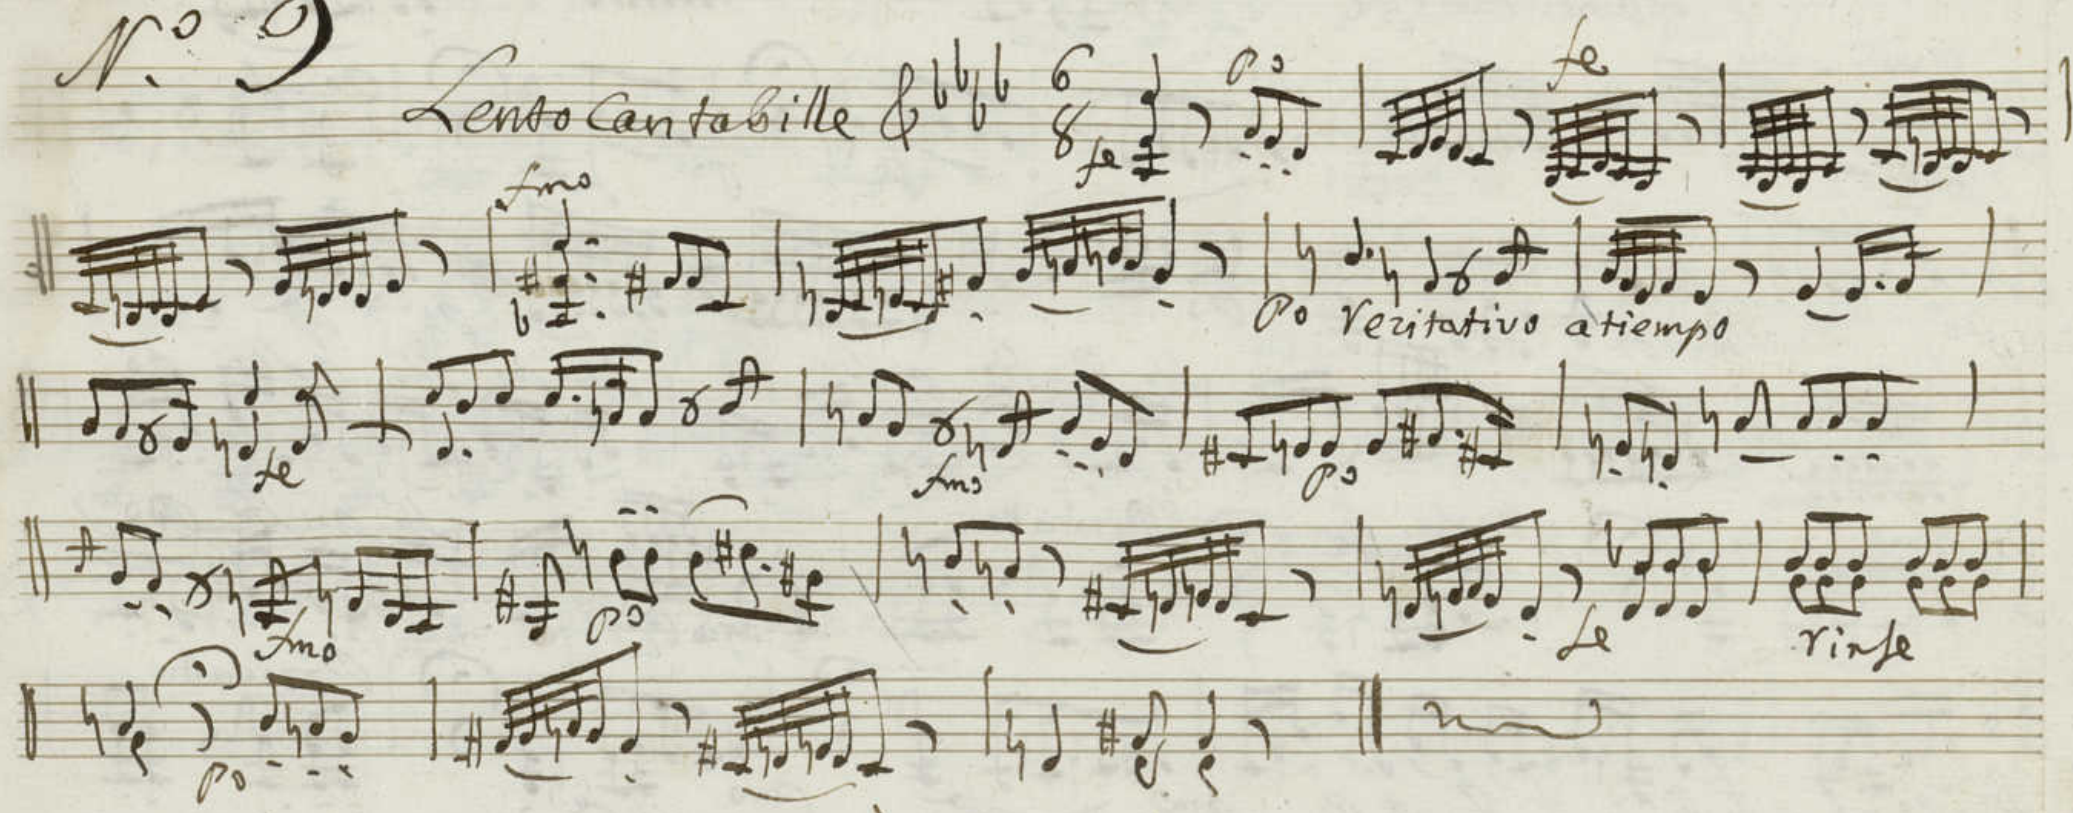 N.º 9
Lento Cantabille 6 8 fe po fe
fmo
Po Recitativo atiempo
fe fmo po
fmo po fe rinfe
po